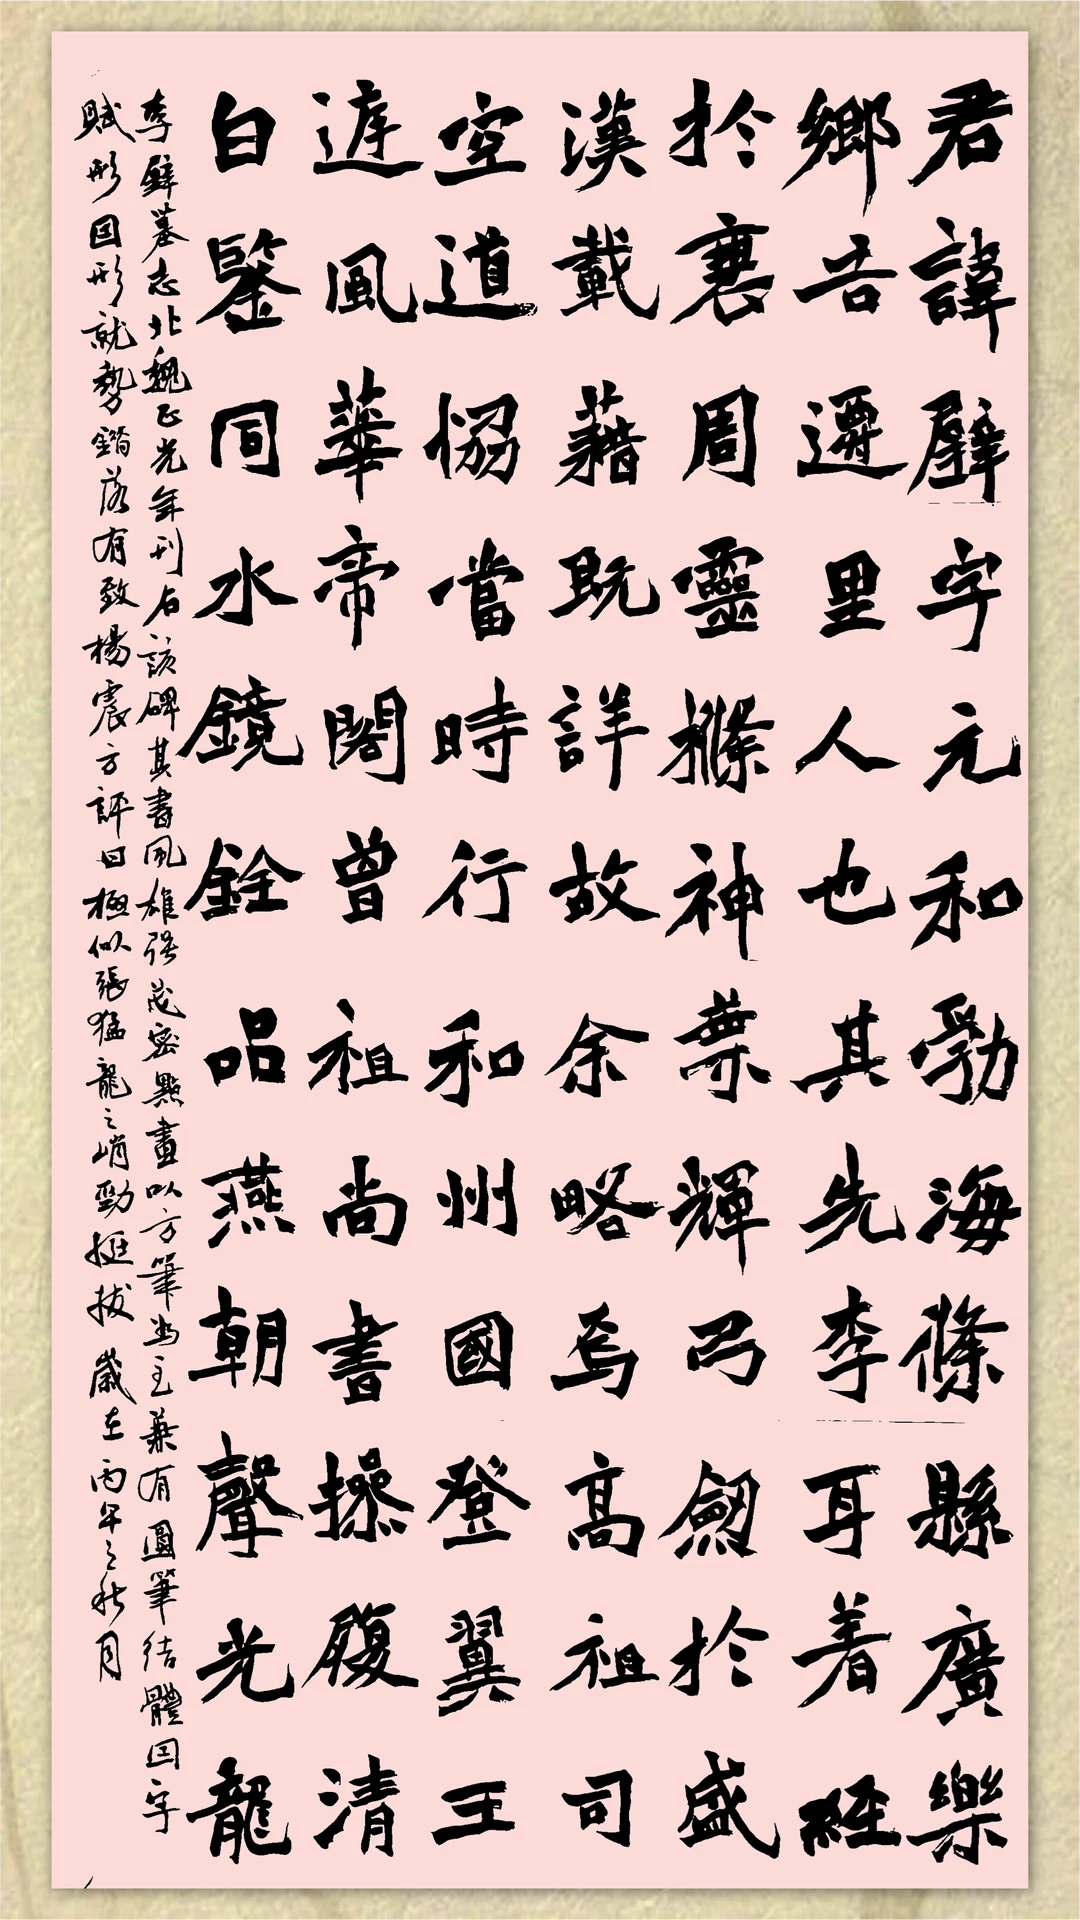 君諱璧字元和勃海條縣廣樂
鄉吉遷里人也其先李耳着經
於襄周靈條神葉輝弓劔於盛
漢載藉既詳故余略焉高祖司
空道協當時行和州國登翼王
遊風華帝閣曾祖尚書操履清
白鑒同水鏡銓品燕朝聲光龍
李璧墓志北魏正光年刊石該碑其書風雄强茂密點畫以方筆為主兼有圓筆結體因字
賦形因形就勢錯落有致楊震方評曰極似張猛龍之峭勁挺拔歲在丙午之秋月